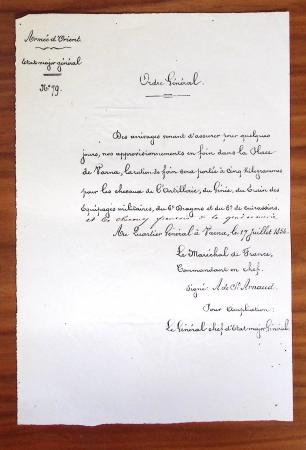 Armée d'Orient.
Etat major général
N° 79.
Ordre Général.
Des arrivages venant d'assurer pour quelques
jours, nos approvisionnements en foin dans la Place
de Varna, la ration de foin sera portée à cinq kilogrammes
pour les chevaux de l'Artillerie, du Génie, du Train des
Equipages militaires, du 6e Dragons et du 6e de cuirassiers.
et les chevaux de la gendarmerie
Au Quartier Général à Varna, le 17 juillet 1854.
Le Maréchal de France,
Commandant en chef.
signé: A de St Arnaud.
Pour ampliation:
Le Général chef d'Etat major Général